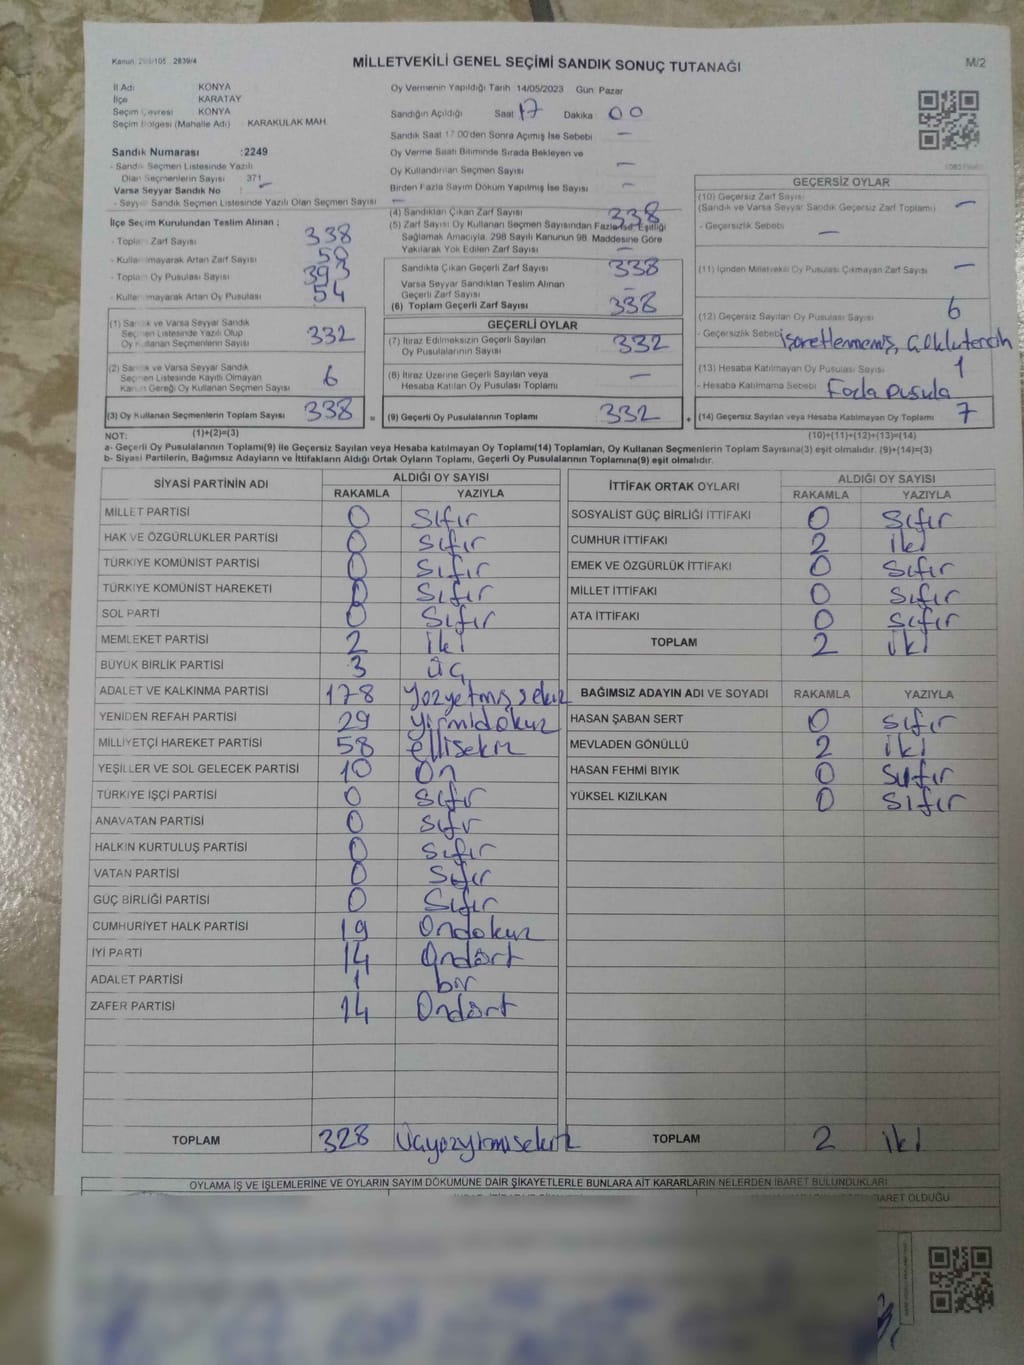 Kanun: 298/105 . 2839/4
MİLLETVEKİLİ GENEL SEÇİMİ SANDIK SONUÇ TUTANAĞI
M/2
İl Adı KONYA
İlçe KARATAY
Seçim Çevresi KONYA
Seçim Bölgesi (Mahalle Adı) KARAKULAK MAH.
Sandık Numarası :2249
- Sandık Seçmen Listesinde Yazılı
Olan Seçmenlerin Sayısı 371
Varsa Seyyar Sandık No : –
- Seyyar Sandık Seçmen Listesinde Yazılı Olan Seçmen Sayısı –
Oy Vermenin Yapıldığı Tarih 14/05/2023 Gün Pazar
Sandığın Açıldığı Saat 17 Dakika 00
Sandık Saat 17:00'den Sonra Açılmış İse Sebebi –
Oy Verme Saati Bitiminde Sırada Bekleyen ve
Oy Kullandırılan Seçmen Sayısı –
Birden Fazla Sayım Döküm Yapılmış İse Sayısı –
İlçe Seçim Kurulundan Teslim Alınan :
- Toplam Zarf Sayısı 338
- Kullanılmayarak Artan Zarf Sayısı 50
- Toplam Oy Pusulası Sayısı 393
- Kullanılmayarak Artan Oy Pusulası 54
(1) Sandık ve Varsa Seyyar Sandık
Seçmen Listesinde Yazılı Olup
Oy Kullanan Seçmenlerin Sayısı 332
(2) Sandık ve Varsa Seyyar Sandık
Seçmen Listesinde Kayıtlı Olmayan
Kanun Gereği Oy Kullanan Seçmen Sayısı 6
(3) Oy Kullanan Seçmenlerin Toplam Sayısı 338 =
(1)+(2)=(3)
(4) Sandıktan Çıkan Zarf Sayısı 338
(5) Zarf Sayısı Oy Kullanan Seçmen Sayısından Fazla ise, Eşitliği
Sağlamak Amacıyla, 298 Sayılı Kanunun 98. Maddesine Göre
Yakılarak Yok Edilen Zarf Sayısı –
Sandıkta Çıkan Geçerli Zarf Sayısı 338
Varsa Seyyar Sandıktan Teslim Alınan
Geçerli Zarf Sayısı –
(6) Toplam Geçerli Zarf Sayısı 338
GEÇERLİ OYLAR
(7) İtiraz Edilmeksizin Geçerli Sayılan
Oy Pusulalarının Sayısı 332
(8) İtiraz Üzerine Geçerli Sayılan veya
Hesaba Katılan Oy Pusulası Toplamı –
(9) Geçerli Oy Pusulalarının Toplamı 332 +
GEÇERSİZ OYLAR
(10) Geçersiz Zarf Sayısı
(Sandık ve Varsa Seyyar Sandık Geçersiz Zarf Toplamı) –
- Geçersizlik Sebebi –
(11) İçinden Milletvekili Oy Pusulası Çıkmayan Zarf Sayısı –
(12) Geçersiz Sayılan Oy Pusulası Sayısı 6
- Geçersizlik Sebebi işaretlenmemiş,
(13) Hesaba Katılmayan Oy Pusulası Sayısı 1
- Hesaba Katılmama Sebebi Fazla pusula
(14) Geçersiz Sayılan veya Hesaba Katılmayan Oy Toplamı 7
(10)+(11)+(12)+(13)=(14)
NOT:
a- Geçerli Oy Pusulalarının Toplamı(9) ile Geçersiz Sayılan veya Hesaba katılmayan Oy Toplamı(14) Toplamları, Oy Kullanan Seçmenlerin Toplam Sayısına(3) eşit olmalıdır. (9)+(14)=(3)
b- Siyasi Partilerin, Bağımsız Adayların ve İttifakların Aldığı Ortak Oyların Toplamı, Geçerli Oy Pusulalarının Toplamına(9) eşit olmalıdır.
SİYASİ PARTİNİN ADI ALDIĞI OY SAYISI
RAKAMLA YAZIYLA
MİLLET PARTİSİ 0 Sıfır
HAK VE ÖZGÜRLÜKLER PARTİSİ 0 Sıfır
TÜRKİYE KOMÜNİST PARTİSİ 0 Sıfır
TÜRKİYE KOMÜNİST HAREKETİ 0 Sıfır
SOL PARTİ 0 Sıfır
MEMLEKET PARTİSİ 2 iki
BÜYÜK BİRLİK PARTİSİ 3 üç
ADALET VE KALKINMA PARTİSİ 178 yözyetmişsekiz
YENİDEN REFAH PARTİSİ 29 yirmidokuz
MİLLİYETÇİ HAREKET PARTİSİ 58 ellisekiz
YEŞİLLER VE SOL GELECEK PARTİSİ 10 On
TÜRKİYE İŞÇİ PARTİSİ 0 Sıfır
ANAVATAN PARTİSİ 0 Sıfır
HALKIN KURTULUŞ PARTİSİ 0 Sıfır
VATAN PARTİSİ 0 Sıfır
GÜÇ BİRLİĞİ PARTİSİ 0 Sıfır
CUMHURİYET HALK PARTİSİ 19 Ondokuz
İYİ PARTİ 14 Ondört
ADALET PARTİSİ 1 bir
ZAFER PARTİSİ 14 Ondört
TOPLAM 328 Üçyözyirmisekiz
İTTİFAK ORTAK OYLARI ALDIĞI OY SAYISI
RAKAMLA YAZIYLA
SOSYALİST GÜÇ BİRLİĞİ İTTİFAKI 0 Sıfır
CUMHUR İTTİFAKI 2 iki
EMEK VE ÖZGÜRLÜK İTTİFAKI 0 Sıfır
MİLLET İTTİFAKI 0 Sıfır
ATA İTTİFAKI 0 Sıfır
TOPLAM 2 iki
BAĞIMSIZ ADAYIN ADI VE SOYADI RAKAMLA YAZIYLA
HASAN ŞABAN SERT 0 Sıfır
MEVLADEN GÖNÜLLÜ 2 iki
HASAN FEHMİ BIYIK 0 Sıfır
YÜKSEL KIZILKAN 0 Sıfır
TOPLAM 2 iki
OYLAMA İŞ VE İŞLEMLERİNE VE OYLARIN SAYIM DÖKÜMÜNE DAİR ŞİKAYETLERLE BUNLARA AİT KARARLARIN NELERDEN İBARET BULUNDUKLARI
OLDUĞU